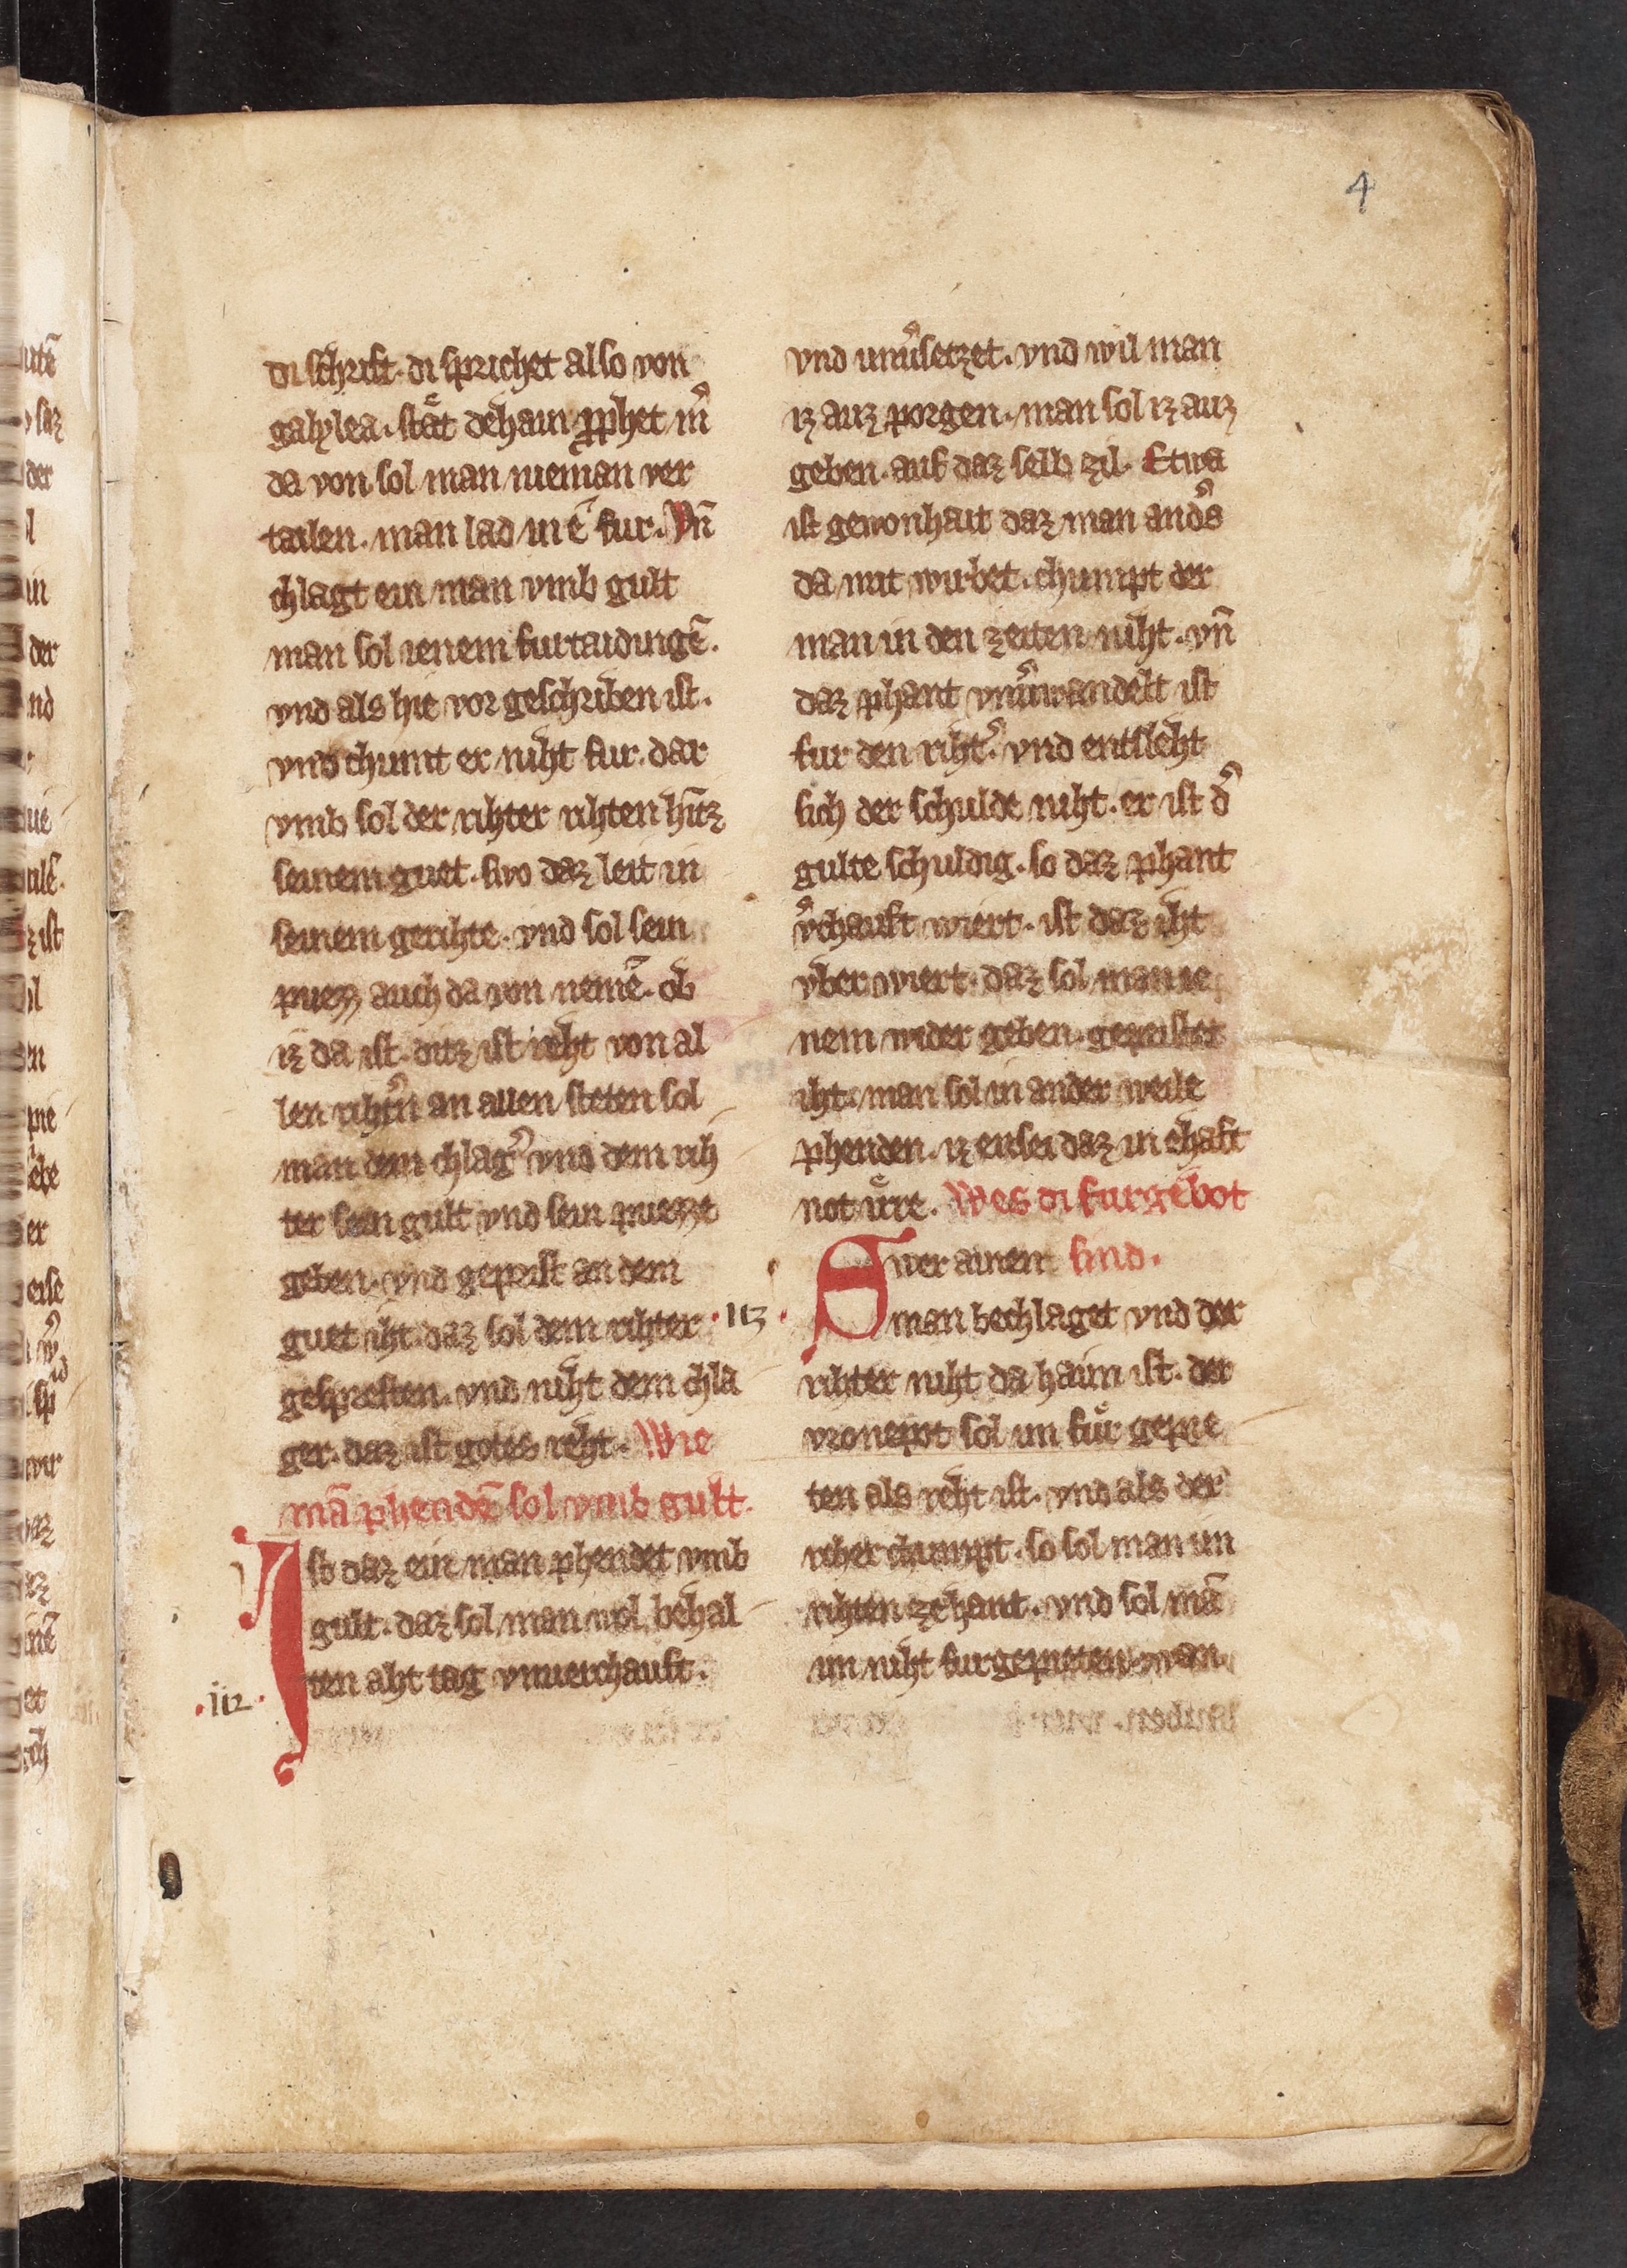 4
di schrift. di sprichet also von
galylea. stãt dehain ꝓphet in̄
da von sol man nieman ver
tailen. man lad in ē fur. Vn̄
chlagt ein man vmb gult
man sol ienem furtaidingē.
vnd als hie vor geschriben ist.
vnd chumt er niht fur. dar
vmb sol der rihter rihten hintz
seinem guet. swo daz leit in
seinem gerihte. vnd sol sein
puezz auch da von nemē. ob
iz da ist. ditz ist reht von al
len rihtn̄ an allen steten sol
man dem chlag̾ vnd dem rih
ter sein gult vnd sein puezze
geben. vnd geprist an dem
guet iht. daz sol dem rihter
gespresten. vnd niht dem chla
ger. daz ist gotes reht. Wie
mā phendē sol vmb gult.
Ist daz ein man phendet vmb
gult. daz sol man wol behal
ten aht tag vnuerchauft.
vnd unu̾setzet. vnd wil man
iz auz porgen. man sol iz auz
geben. auf daz selb zil. Etwa
ist gewonhait daz man and̾s
da mit wirbet. chumpt der
man in den zeiten niht. vn̄
daz phant vnu̾wandelt ist
fur den riht̾. vnd entsleht
sich der schulde niht. er ist d̾
gulte schuldig. so daz phant
v̾chauft wiert. ist daz iht
vber wiert. daz sol man ie
nem wider geben. geprister
iht. man sol in ander weile
phenden. iz ensei daz in ehaft
not uͤrre. Wes di furgebot
Swer ainen sind.
.113. man bechlaget vnd der
rihter niht da haim ist. der
vronepot sol im fuͤr gepie
ten als reht ist. vnd als der
riher chumpt. so sol man im
rihten zehant. vnd sol mā
im niht furgepieten. wan
.112.